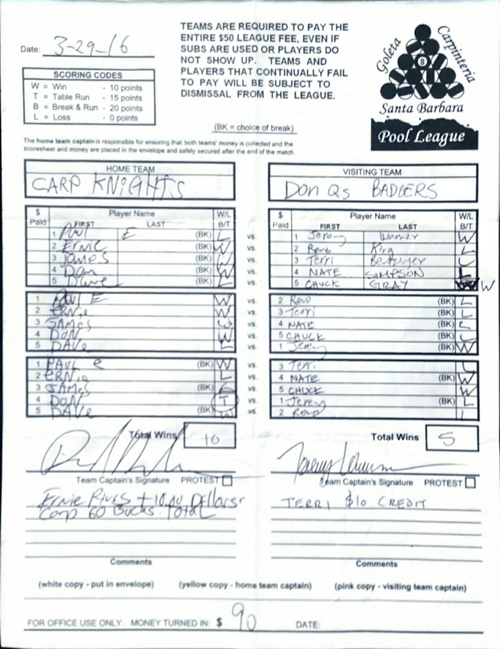 Date: 3-29-16
TEAMS ARE REQUIRED TO PAY THE
ENTIRE $50 LEAGUE FEE, EVEN IF
SUBS ARE USED OR PLAYERS DO
NOT SHOW UP. TEAMS AND
PLAYERS THAT CONTINUALLY FAIL
TO PAY WILL BE SUBJECT TO
DISMISSAL FROM THE LEAGUE.
(BK = choice of break)
SCORING CODES
W = Win - 10 points
T = Table Run - 15 points
B = Break & Run - 20 points
L = Loss - 0 points
Goleta Carpinteria
8
Santa Barbara
Pool League
The home team captain is responsible for ensuring that both teams' money is collected and the
scoresheet and money are placed in the envelope and safely secured after the end of the match.
HOME TEAM
CARP KNIGHTS
VISITING TEAM
Don Qs BADGERS
$ Paid Player Name W/L
FIRST LAST B/T
1 E (BK) vs.
2 ERNIE W vs.
3 James (BK) vs.
4 Don W vs.
5 (BK) L vs.
$ Paid Player Name W/L
FIRST LAST B/T
1 Jeremy L
2 Reno King L
3 Terri
4 NATE SIMPSON L
5 CHUCK GRAY W
1 PAUL E W vs. 2 Reno (BK) L
2 ERNIE vs. 3 Terri (BK) L
3 JAMES vs. 4 NATE (BK) L
4 DON W vs. 5 CHUCK (BK) L
5 DAVE L vs. 1 Jeremy (BK) W
1 PAUL E (BK) W vs. 3 Terri L
2 ERNIE L vs. 4 NATE (BK) W
3 JAMES (BK) L vs. 5 CHUCK W
4 DON T vs. 1 Jeremy (BK) L
5 DAVE (BK) W vs. 2 Reno L
Total Wins 10
Total Wins 5
Team Captain's Signature PROTEST
Team Captain's Signature PROTEST
Ernie Pluss + 10.00 Dollars
Carp 60 Bucks Total
TERRI $10 CREDIT
Comments
Comments
(white copy - put in envelope) (yellow copy - home team captain) (pink copy - visiting team captain)
FOR OFFICE USE ONLY: MONEY TURNED IN: $ 90 DATE: